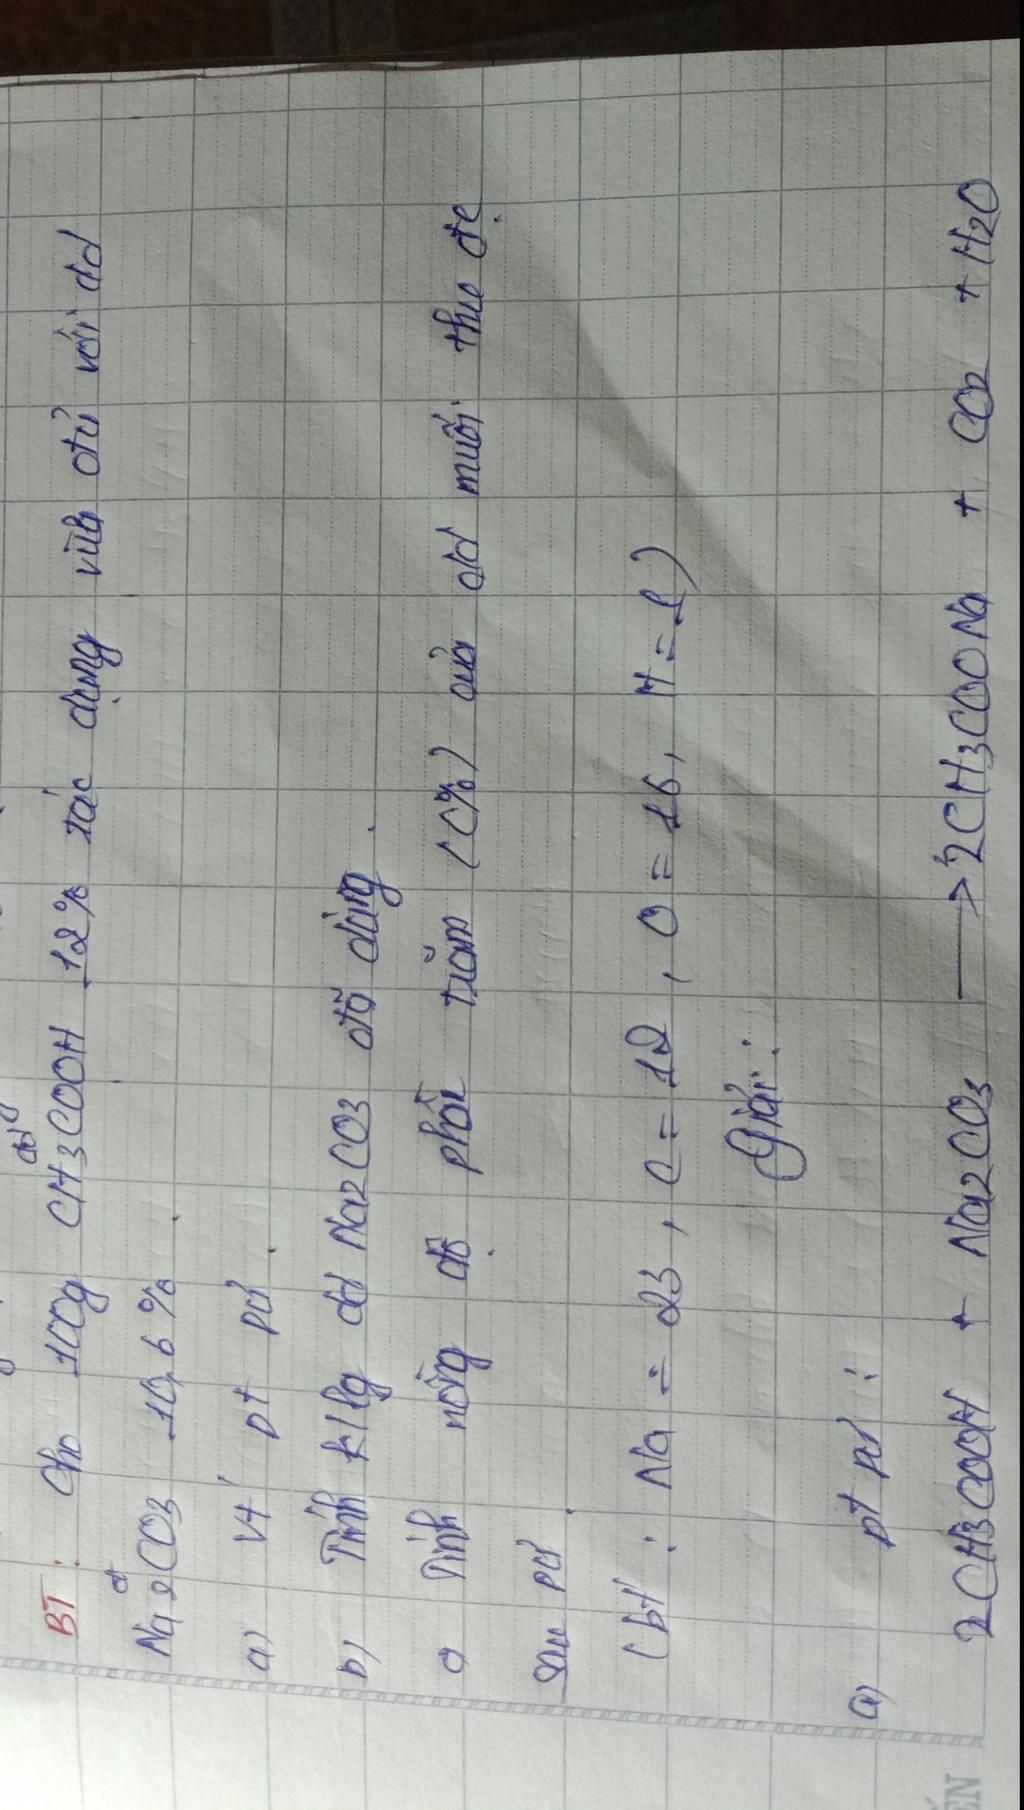 BT: Cho 100g dd CH3COOH 12% tác dụng vừa đủ với dd
Na2CO3 10,6%.
a) Vt pt pứ.
b) Tính k/lg dd Na2CO3 đã dùng.
c) Tính nồng độ phần trăm (C%) của dd muối thu đc
sau pứ.
(bt: Na = 23, C = 12, O = 16, H = 1)
Giải:
a) pt pứ:
2CH3COOH + Na2CO3 → 2CH3COONa + CO2 + H2O